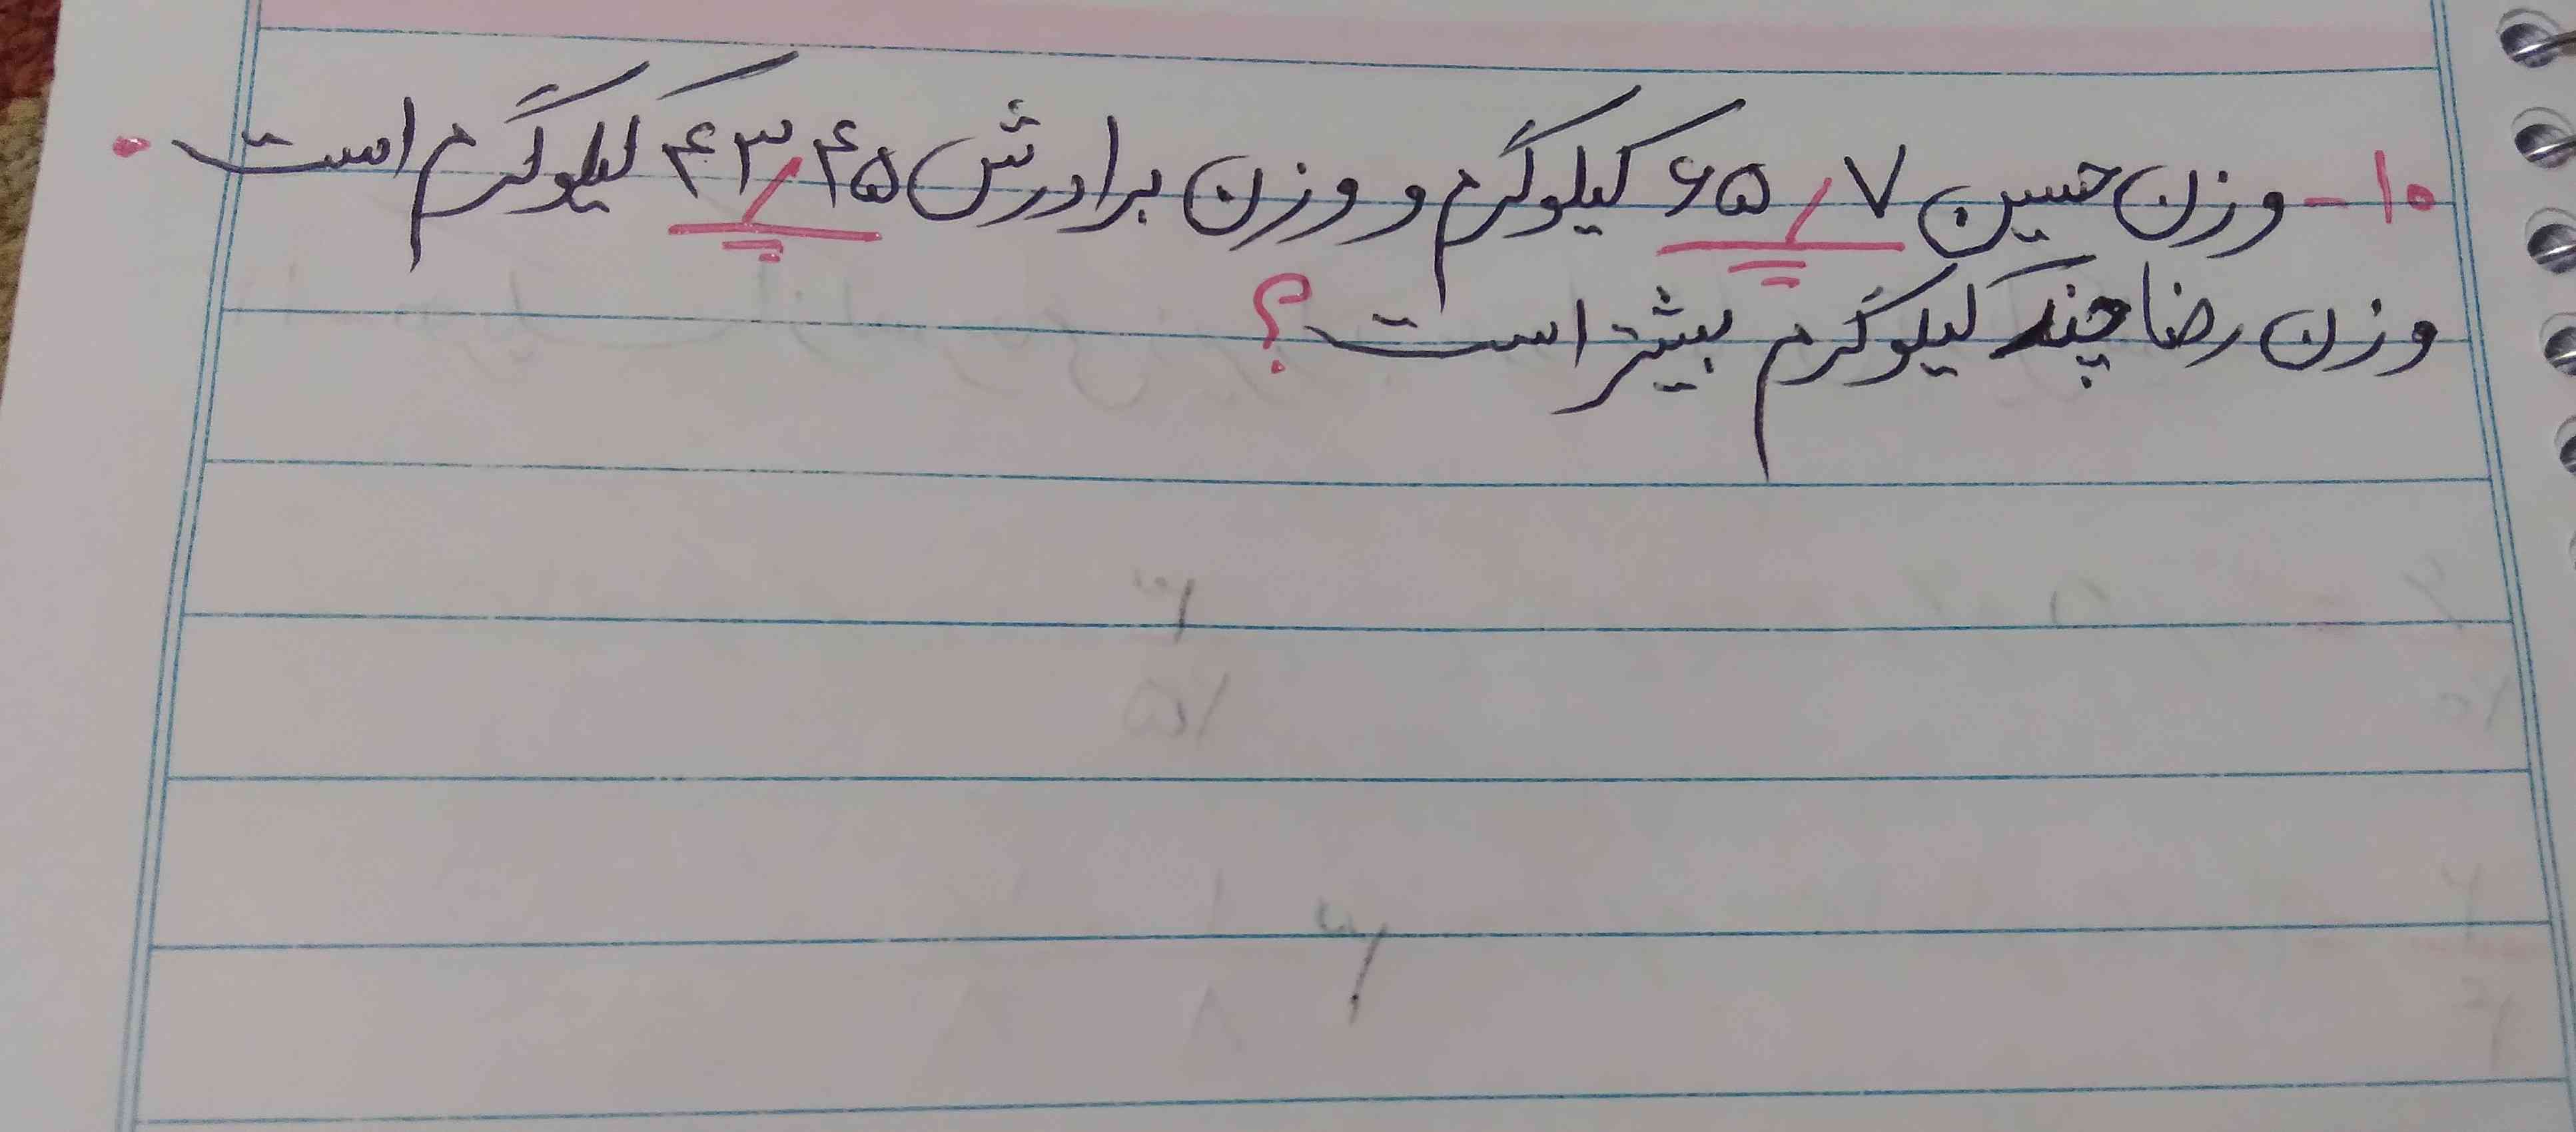 ۱۰- وزن حسین ۶۵/۷ کیلوگرم و وزن برادرش ۴۳/۴۵ کیلوگرم است.
وزن رضا چند کیلوگرم بیشتر است؟